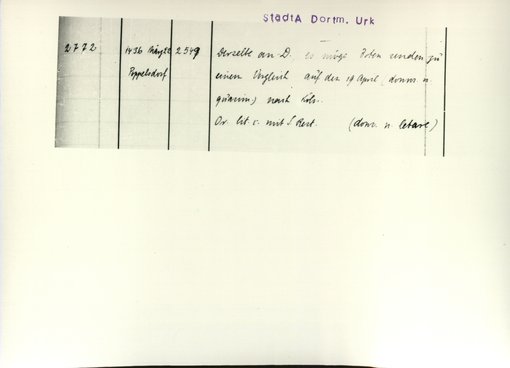 StadtA Dortm. Urk
2772 1436 März 22 2549 Derselbe an D. es möge Boten senden zu
Poppelsdorf einen Vergleich auf den 19 April (donrs. n.
quasim.) nach Köln.
Or. lit. c. mit S Rest. (donr. n. letare)